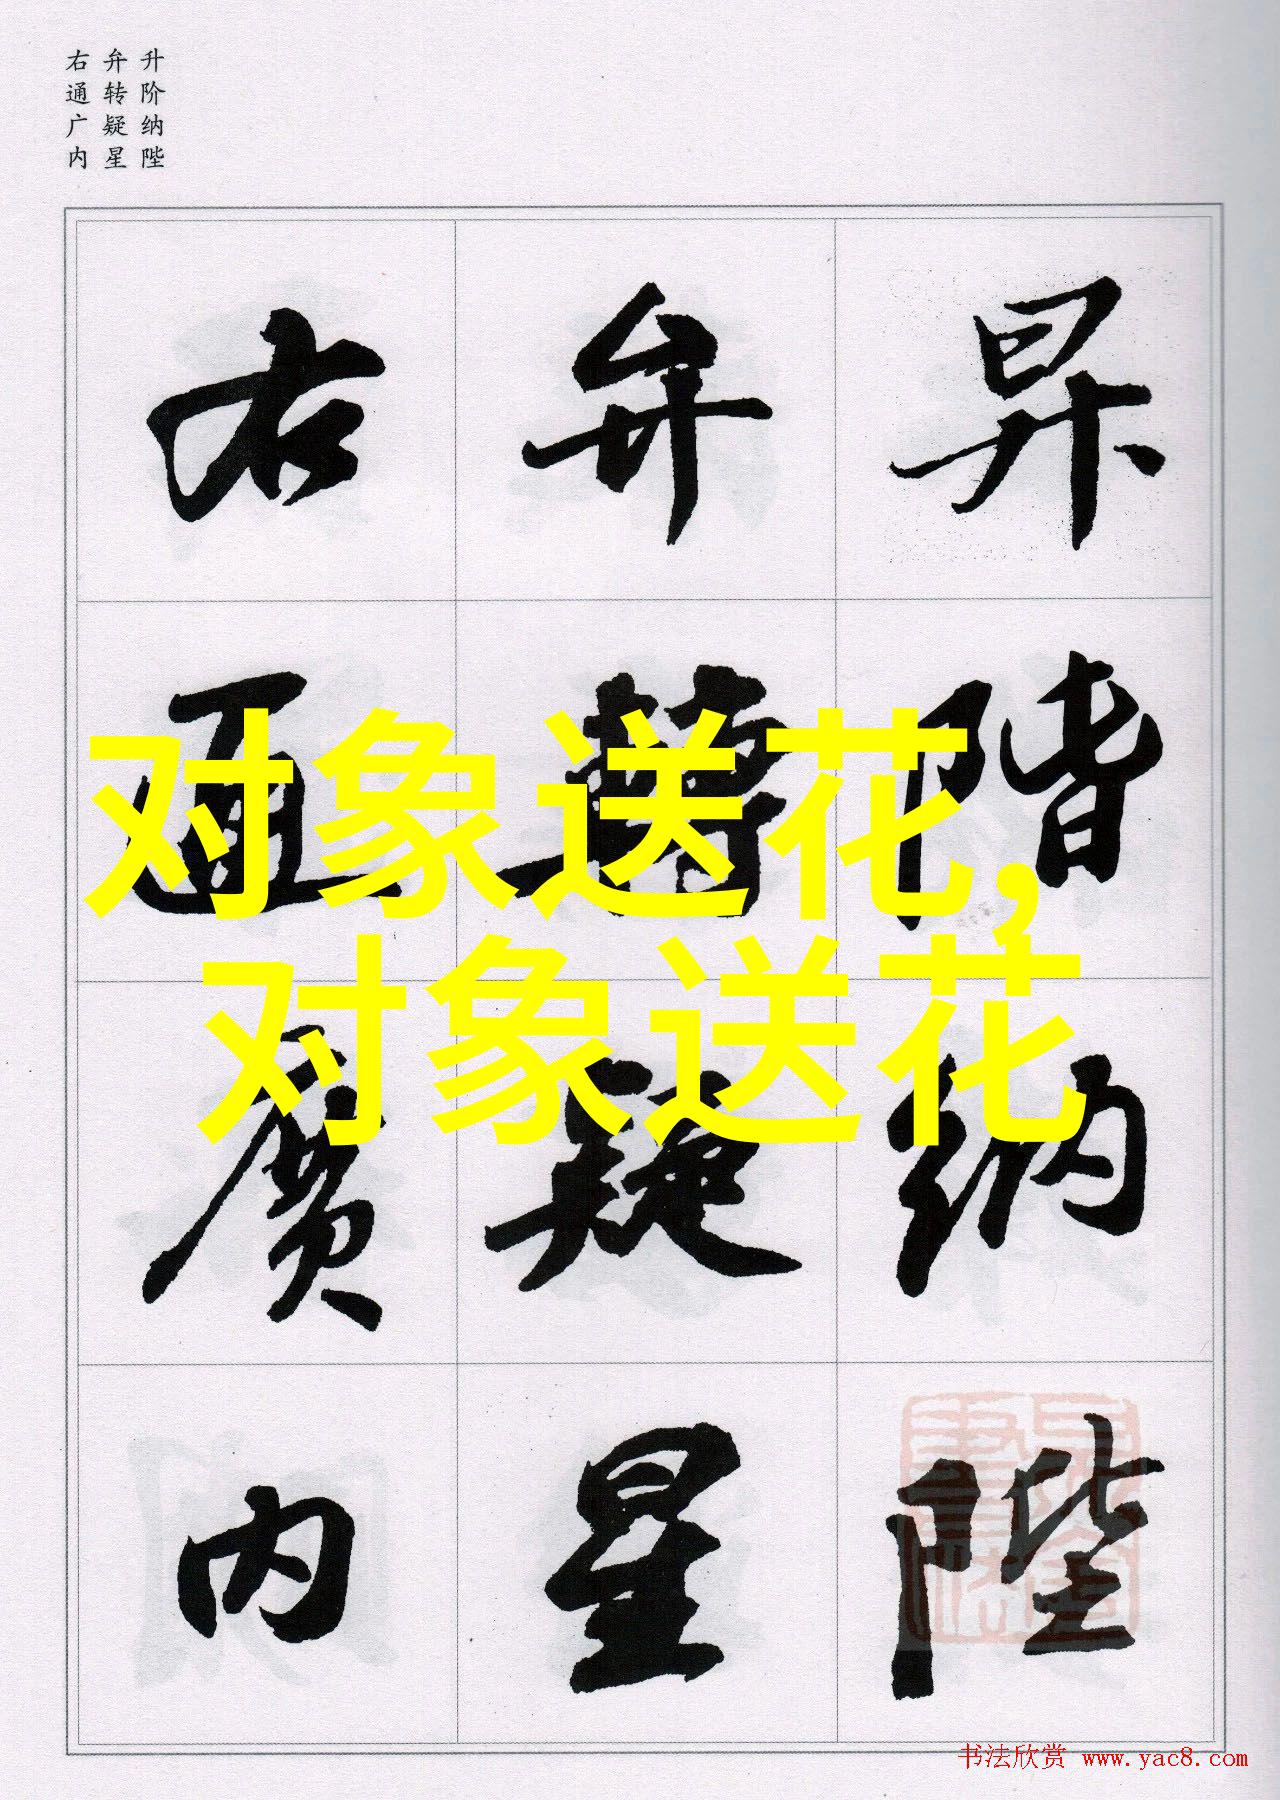 升阶纳陛
弁转疑星
右通广内
昇階納陛
弁轉疑星
右通廣内
对象送花,
对象送花
书法欣赏 www.yac8.com